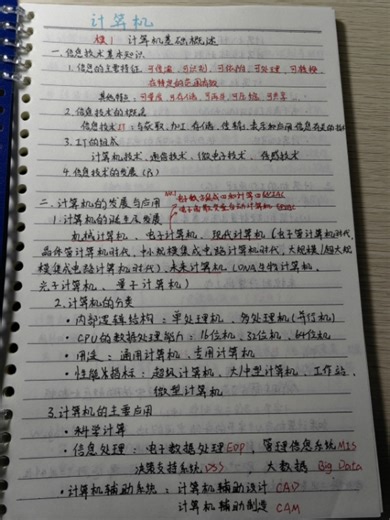 计算机
模1 计算机基础概述
一.信息技术基本知识
1.信息的主要特征:可传递、可识别、可依附、可处理、可转换、
在特定的范围有效
其他特征:可量度、可存储、可再生、可压缩、可共享
2.信息技术的概念
信息技术IT:与获取、加工、存储、传输、表示和应用信息在
3.IT的组成
计算机技术、通信技术、微电子技术、传感技术
4.信息技术的发展
二.计算机的发展与应用
1.计算机的诞生及发展
机械计算机、电子计算机、现代计算机(电子管计算机时代、
晶体管计算机时代、中小规模集成电路计算机时代、大规模/超大规
模集成电路计算机时代)、未来计算机(DNA生物计算机、
光子计算机、量子计算机)
2.计算机的分类
·内部逻辑结构:单处理机、多处理机(并行机)
·CPU的数据处理能力:16位机、32位机、64位机
·用途:通用计算机、专用计算机
·性能及指标:超级计算机、大/中型计算机、工作站、
微型计算机
3.计算机的主要应用
·科学计算
·信息处理:电子数据处理EDP,管理信息系统MIS
决策支持系统DSS,大数据 Big Data
·计算机辅助系统:计算机辅助设计 CAD
计算机辅助制造 CAM